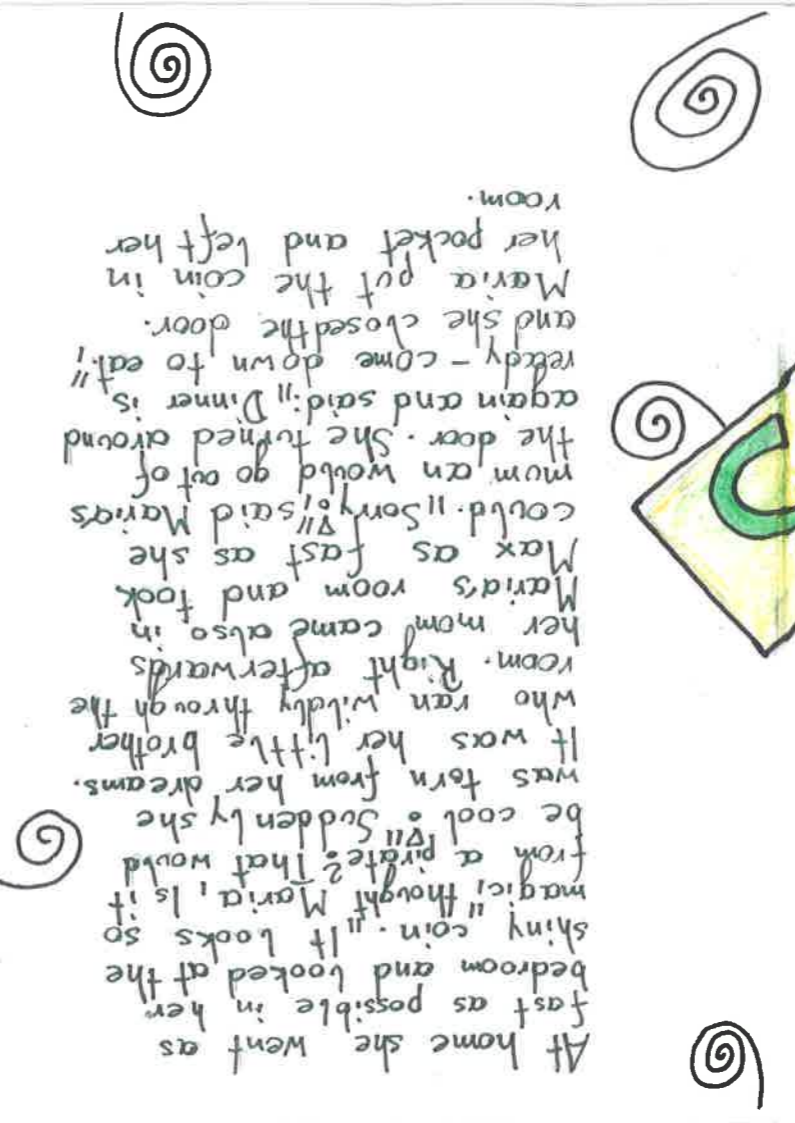 At home she went as
fast as possible in her
bedroom and looked at the
shiny coin. "It looks so
magic," thought Maria, "Is it
from a pirate? That would
be cool!" Suddenly she
was torn from her dreams.
It was her little brother
who ran wildly through the
room. Right afterwards
her mom came also in
Maria's room and took
Max as fast as she
could. "Sorry!" said Maria's
mum an would go out of
the door. She turned around
again and said: "Dinner is
ready - come down to eat,"
and she closed the door.
Maria put the coin in
her pocket and left her
room.